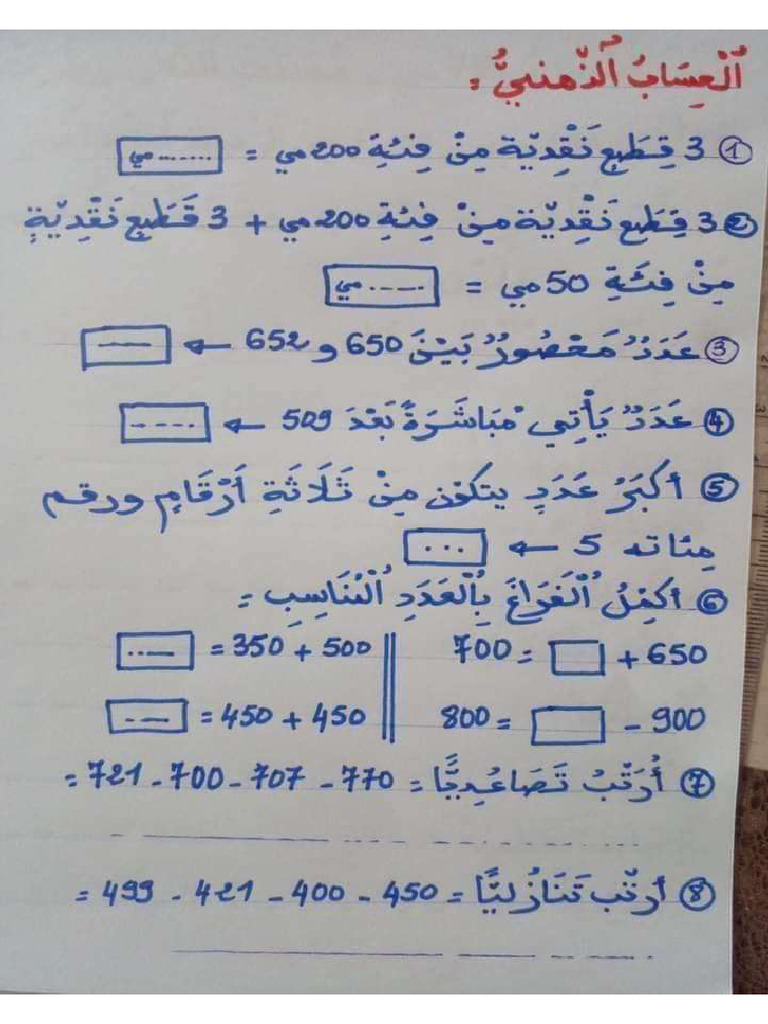 اَلْحِسَابُ الذِّهْنِيُّ :
① 3 قِطَعٍ نَقْدِيَّة مِنْ فِئَةِ 200 مي = ....... مي
② 3 قِطَع نَقْدِيَّة مِنْ فِئَةِ 200 مي + 3 قَطَعٍ نَقْدِيَّةٍ
مِنْ فِئَةِ 50 مي = ....... مي
③ عَدَدٌ مَحْصُورٌ بَيْنَ 650 و 652 ← .......
④ عَدَدٌ يَأْتِي مُبَاشَرَةً بَعْدَ 509 ← .......
⑤ أكبَرُ عَدَدٍ يتكوّن مِنْ ثَلَاثَةِ أَرْقَامٍ ورقم
مِئاته 5 ← ...
⑥ أكمِلُ الْفَرَاغَ بِالْعَدَدِ الْمُنَاسِبِ :
650 + □ = 700 || 500 + 350 = .......
900 - □ = 800 || 450 + 450 = .......
⑦ أُرَتِّبُ تَصَاعُدِيًّا : 770 - 707 - 700 - 721 =
⑧ أرتّب تَنَازُلِيًّا : 450 - 400 - 421 - 499 =